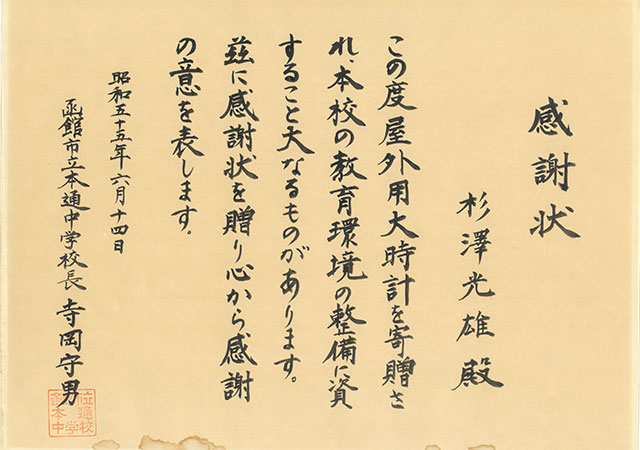 感謝状
杉澤光雄殿
この度屋外用大時計を寄贈さ
れ、本校の教育環境の整備に資
すること大なるものがあります。
茲に感謝状を贈り心から感謝
の意を表します。
昭和五十五年六月十四日
函館市立本通中学校長 寺岡守男